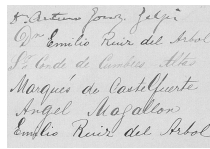 Dn. Arturo Zalger
Dn. Emilio Ruiz del Arbol
Sr. Conde de Cumbres Altas
Marqués de Castelfuerte
Angel Magallon
Emilio Ruiz del Arbol